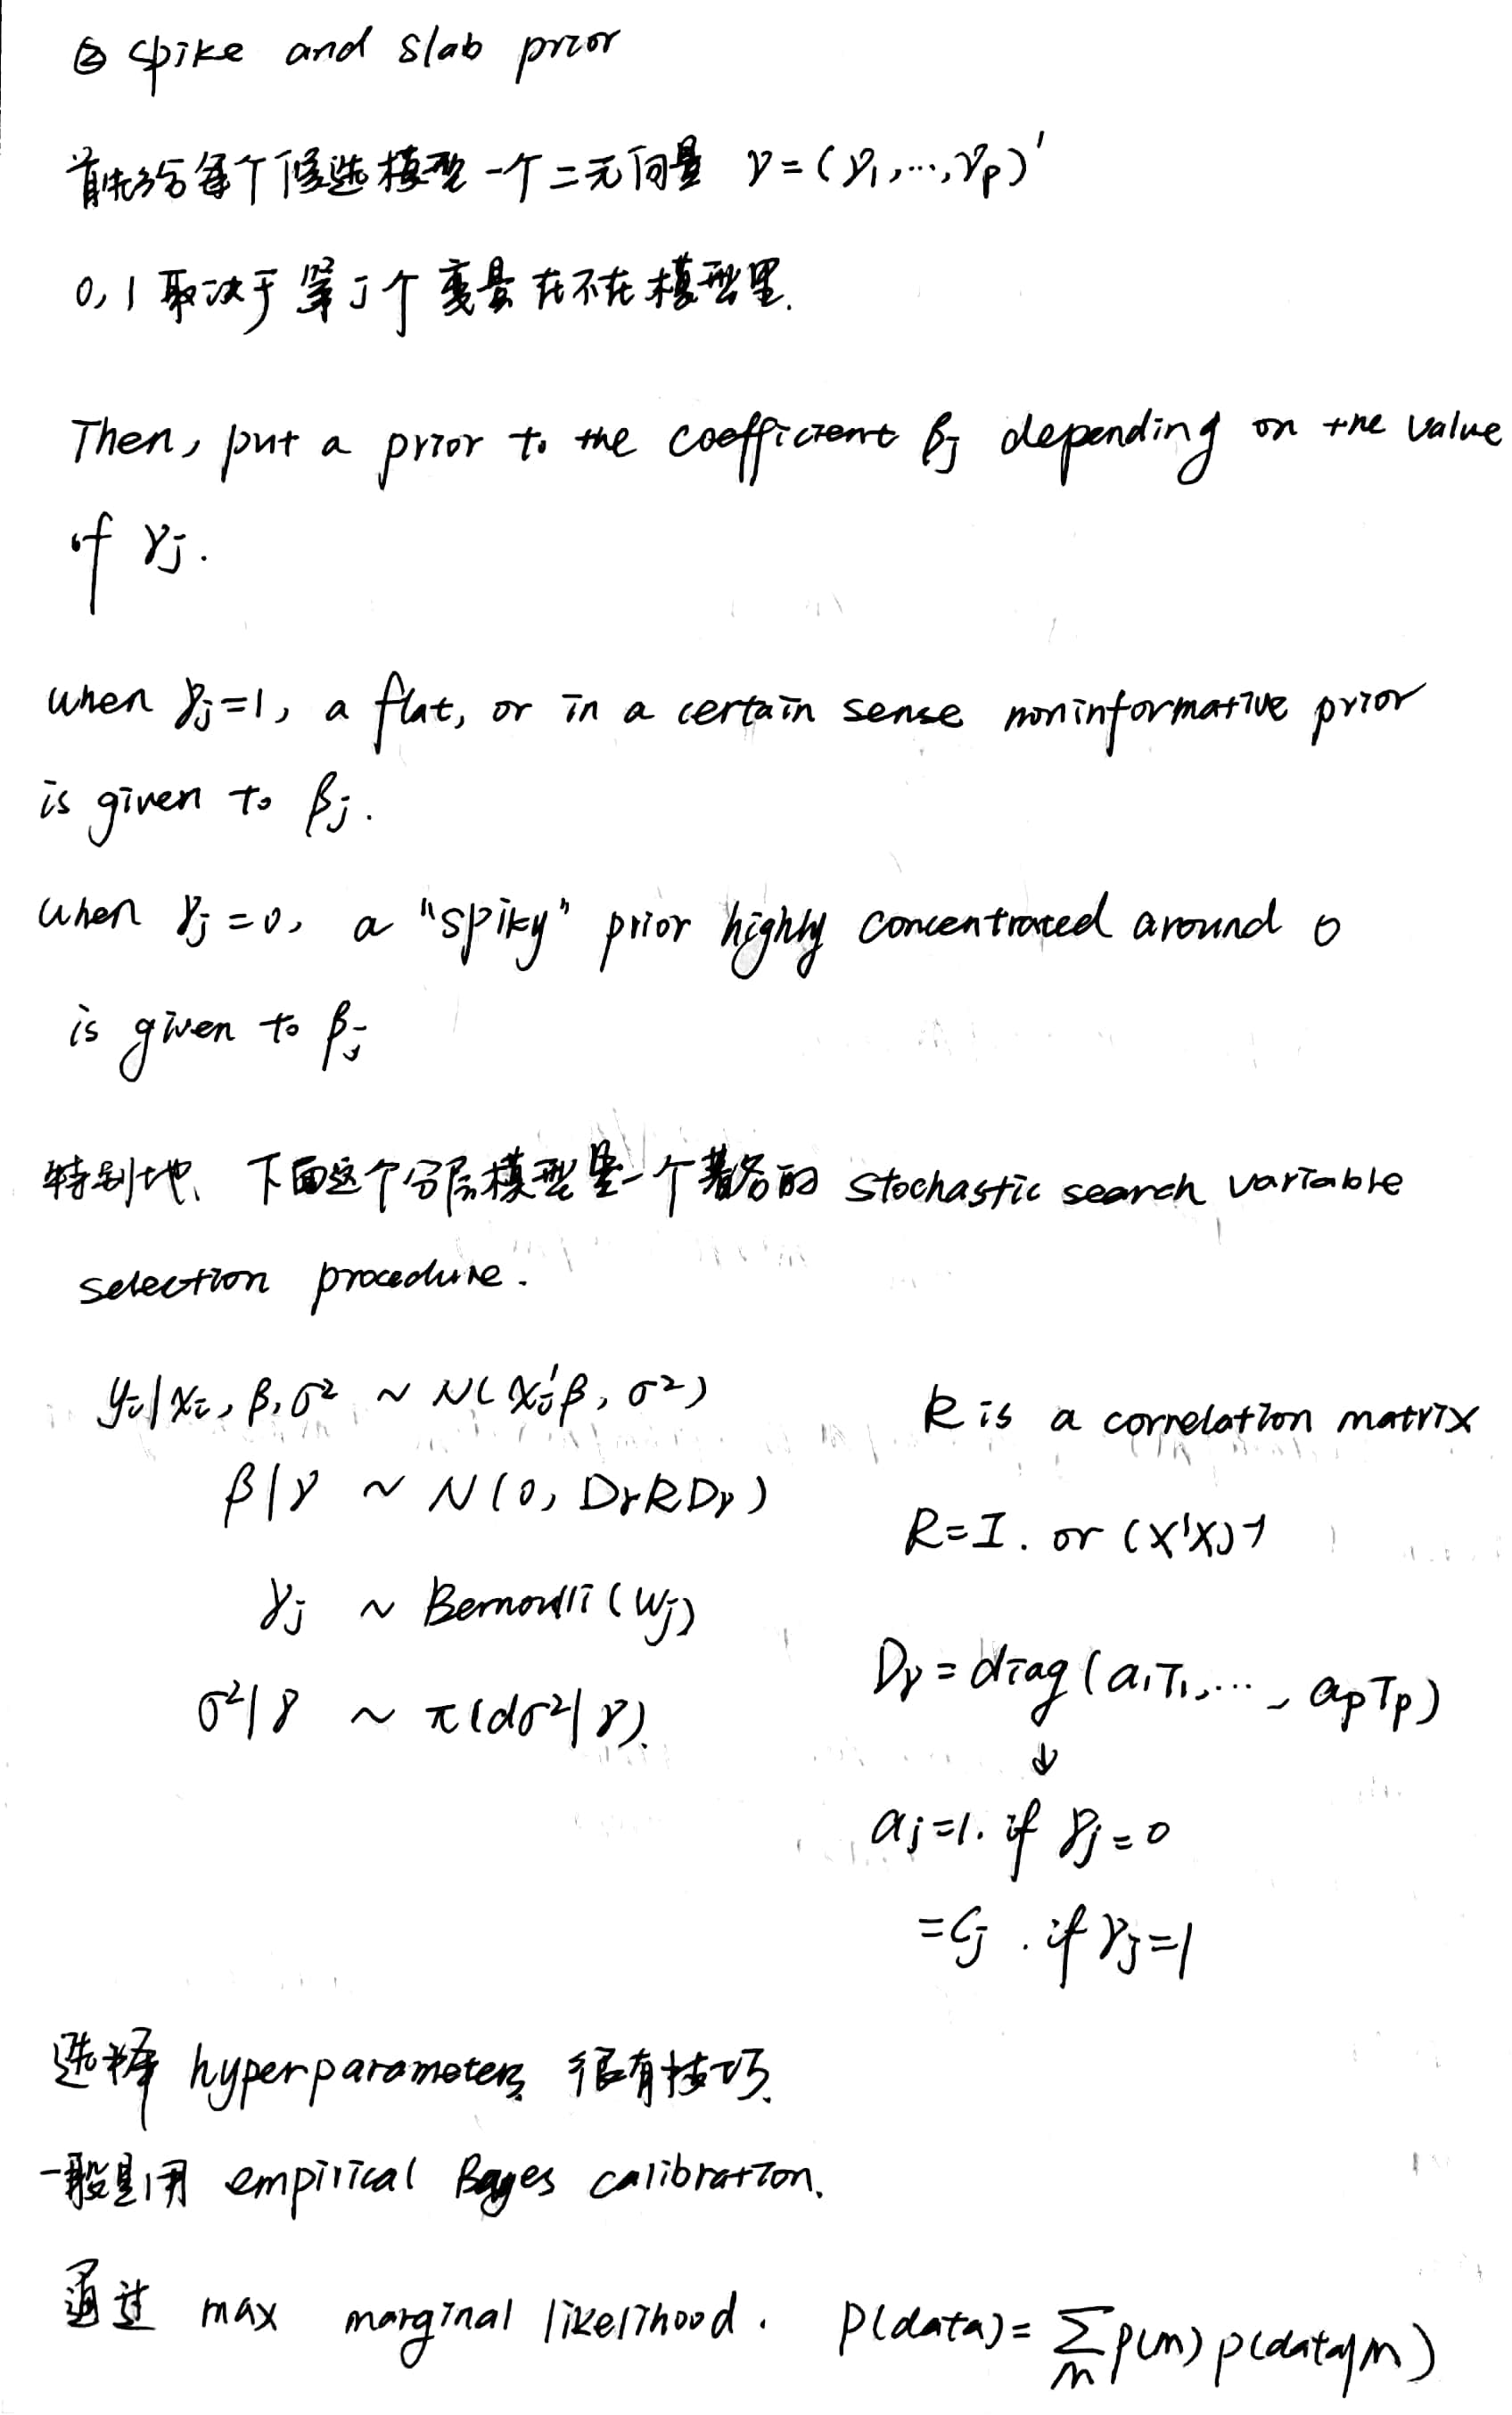 ② spike and slab prior
首先给每个候选模型一个二元向量 γ=(γ₁,…,γₚ)'
0,1取决于第j个变量在不在模型里.
Then, put a prior to the coefficient βⱼ depending on the value
of γⱼ.
when γⱼ=1, a flat, or in a certain sense noninformative prior
is given to βⱼ.
when γⱼ=0, a "spiky" prior highly concentrated around 0
is given to βⱼ
特别地、下面这个分层模型是一个著名的 stochastic search variable
selection procedure.
yᵢ|xᵢ, β, σ² ~ N(xᵢ'β, σ²)
β|γ ~ N(0, DᵧRDᵧ)
γⱼ ~ Bernoulli(wⱼ)
σ²|γ ~ π(dσ²|γ).
R is a correlation matrix
R=I. or (X'X)⁻¹
Dᵧ=diag(a₁τ₁,…, aₚτₚ)
↓
aⱼ=1. if γⱼ=0
=cⱼ. if γⱼ=1
选择 hyperparameters 很有技巧.
一般是用 empirical Bayes calibration.
通过 max marginal likelihood. p(data)=∑ₘ p(m) p(data|m)